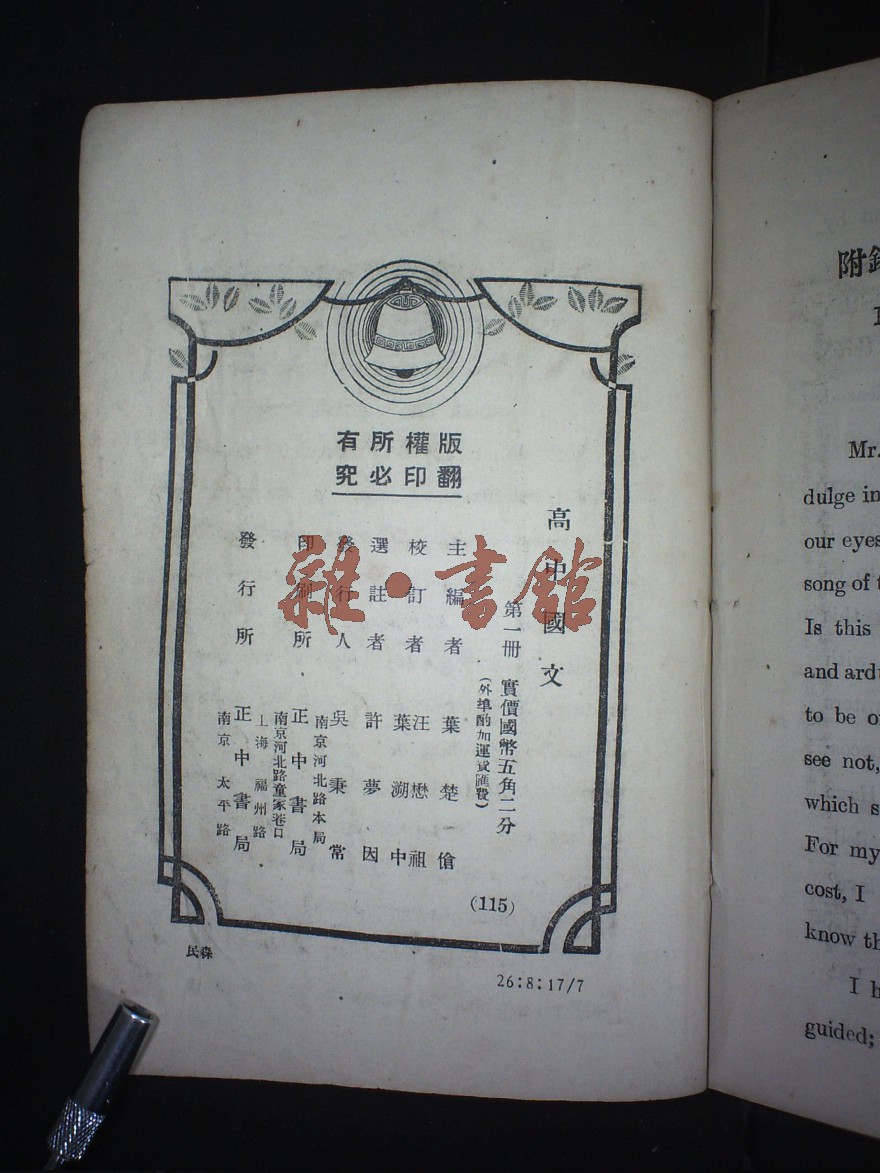 版權所有
翻印必究
高中國文
第一冊 實價國幣五角二分
(外埠酌加運費匯費)
主編者 葉楚傖
校訂者 汪懋祖 葉溯中
選註者 許夢因
發行人 吳秉常
南京河北路本局
印刷所 正中書局
南京河北路童家巷口
上海福州路
發行所 正中書局
南京太平路
(115)
民森
26:8:17/7
雜·書館
附錄
Mr.
dulge in
our eyes
song of t
Is this
and ard
to be o
see not,
which s
For my
cost, I
know th
I h
guided;